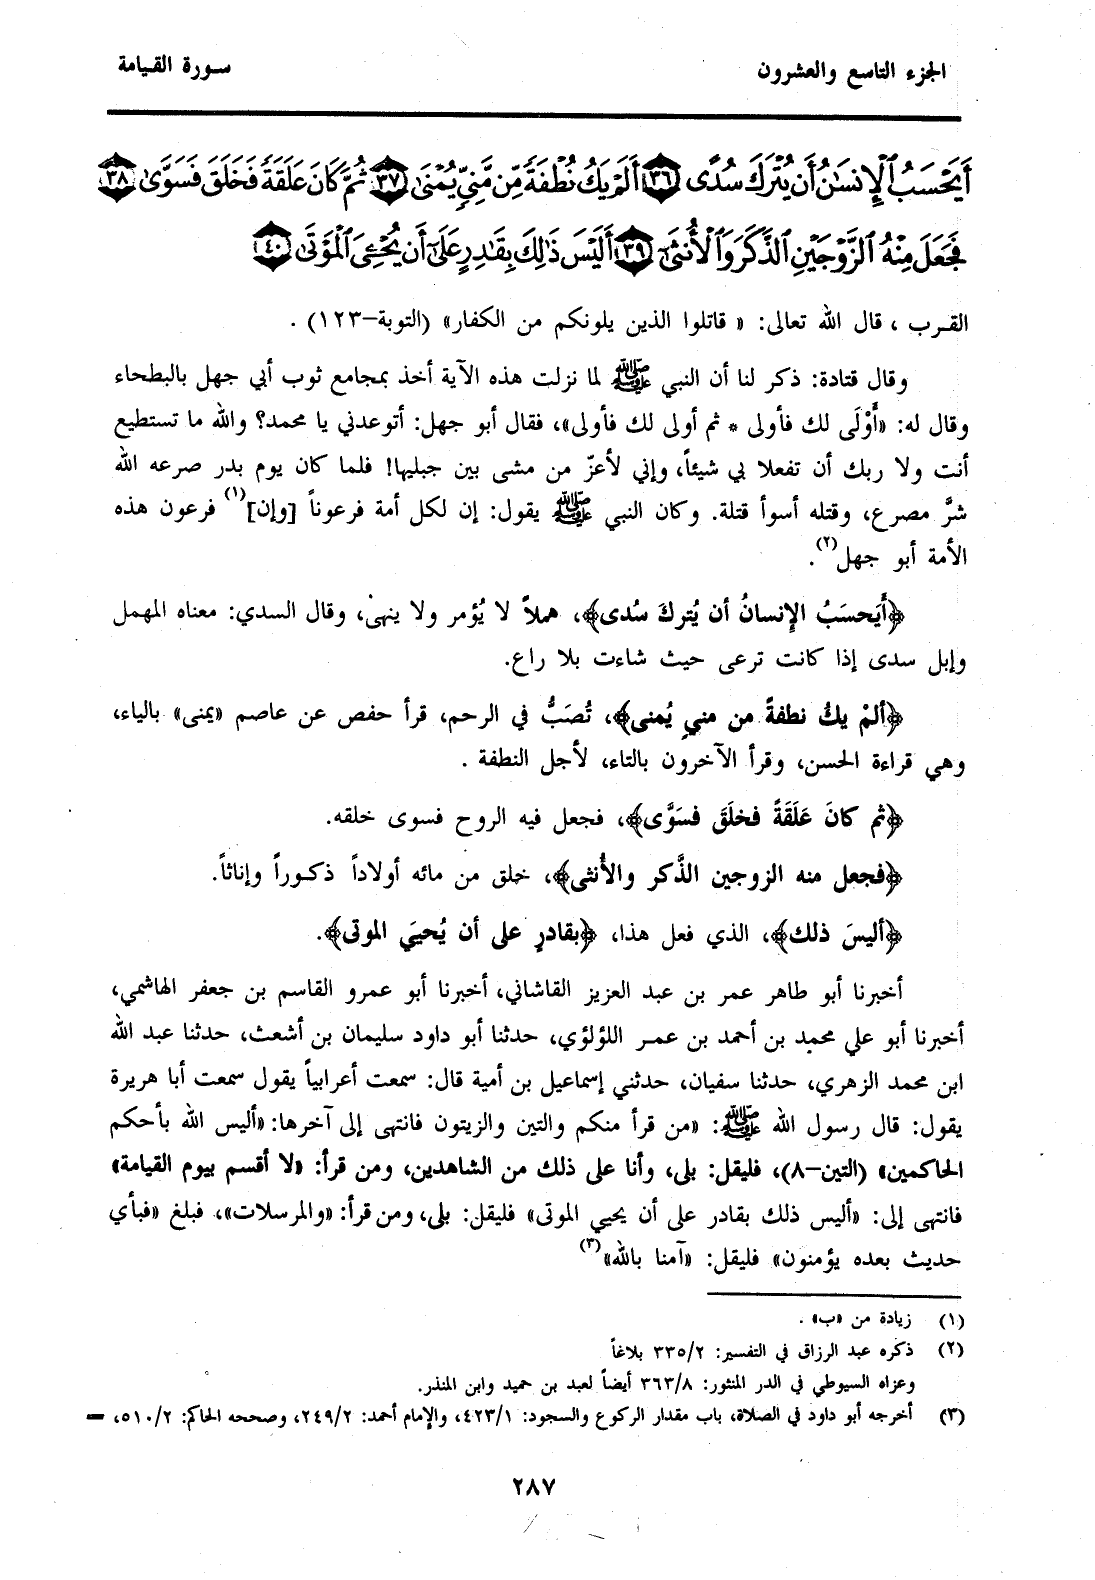 الجزء التاسع والعشرون
سورة القيامة
أَيَحْسَبُ ٱلْإِنسَٰنُ أَن يُتْرَكَ سُدًى ٣٦ أَلَمْ يَكُ نُطْفَةً مِّن مَّنِىٍّ يُمْنَىٰ ٣٧ ثُمَّ كَانَ عَلَقَةً فَخَلَقَ فَسَوَّىٰ ٣٨
فَجَعَلَ مِنْهُ ٱلزَّوْجَيْنِ ٱلذَّكَرَ وَٱلْأُنثَىٰٓ ٣٩ أَلَيْسَ ذَٰلِكَ بِقَٰدِرٍ عَلَىٰٓ أَن يُحْـِۧىَ ٱلْمَوْتَىٰ ٤٠
القرب ، قال الله تعالى: « قاتلوا الذين يلونكم من الكفار» (التوبة-١٢٣) .
وقال قتادة: ذكر لنا أن النبي ﷺ لما نزلت هذه الآية أخذ بمجامع ثوب أبي جهل بالبطحاء
وقال له: «أَوْلَى لك فأولى * ثم أولى لك فأولى»، فقال أبو جهل: أتوعدني يا محمد؟ والله ما تستطيع
أنت ولا ربك أن تفعلا بي شيئاً، وإني لأعزّ من مشى بين جبليها! فلما كان يوم بدر صرعه الله
شرَّ مصرع، وقتله أسوأ قتلة. وكان النبي ﷺ يقول: إن لكل أمة فرعوناً [وإن](١) فرعون هذه
الأمة أبو جهل(٢).
﴿أَيَحسَبُ الإِنسانُ أن يُتركَ سُدى﴾، هملاً لا يُؤمر ولا ينهىٰ، وقال السدي: معناه المهمل
وإبل سدى إذا كانت ترعى حيث شاءت بلا راع.
﴿ألمْ يكُ نطفةً من مني يُمنى﴾، تُصَبُّ في الرحم، قرأ حفص عن عاصم «يمنى» بالياء،
وهي قراءة الحسن، وقرأ الآخرون بالتاء، لأجل النطفة .
﴿ثم كانَ عَلَقَةً فخلَقَ فسَوَّى﴾، فجعل فيه الروح فسوى خلقه.
﴿فجعل منه الزوجين الذَّكر والأُنثى﴾، خلق من مائه أولاداً ذكوراً وإناثاً.
﴿أليسَ ذلك﴾، الذي فعل هذا، ﴿بقادرٍ على أن يُحييَ الموتى﴾.
أخبرنا أبو طاهر عمر بن عبد العزيز القاشاني، أخبرنا أبو عمرو القاسم بن جعفر الهاشمي،
أخبرنا أبو علي محمد بن أحمد بن عمر اللؤلؤي، حدثنا أبو داود سليمان بن أشعث، حدثنا عبد الله
ابن محمد الزهري، حدثنا سفيان، حدثني إسماعيل بن أمية قال: سمعت أعرابياً يقول سمعت أبا هريرة
يقول: قال رسول الله ﷺ: «من قرأ منكم والتين والزيتون فانتهى إلى آخرها: «أليس الله بأحكم
الحاكمين» (التين-٨)، فليقل: بلى، وأنا على ذلك من الشاهدين، ومن قرأ: «لا أقسم بيوم القيامة»
فانتهى إلى: «أليس ذلك بقادر على أن يحيي الموتى» فليقل: بلى، ومن قرأ: «والمرسلات»، فبلغ «فبأي
حديث بعده يؤمنون» فليقل: «آمنا بالله»(٣)
(١) زيادة من «ب» .
(٢) ذكره عبد الرزاق في التفسير: ٣٣٥/٢ بلاغاً
وعزاه السيوطي في الدر المنثور: ٣٦٣/٨ أيضاً لعبد بن حميد وابن المنذر.
(٣) أخرجه أبو داود في الصلاة، باب مقدار الركوع والسجود: ٤٢٣/١، والإمام أحمد: ٢٤٩/٢، وصححه الحاكم: ٥١٠/٢، =
٢٨٧